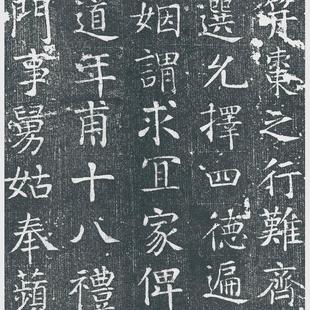 棗之行難齊
選允擇四德遍
姻謂求冝家俾
道年甫十八禮
門事舅姑奉蘋